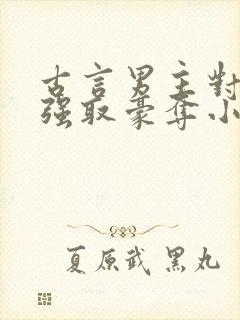 古言男主對
强取豪奪小
夏原武 黑丸